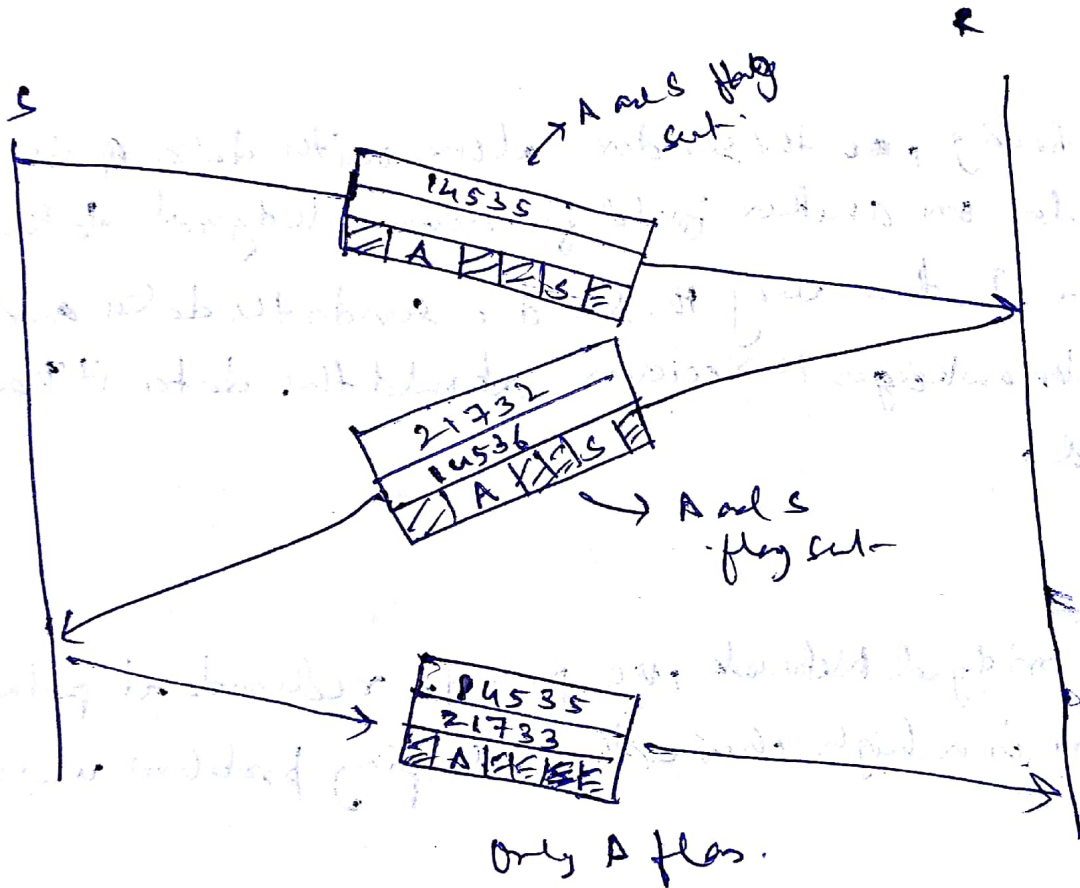 R
S
A and S flag
set.
14535
A S
21732
14536
A S
A and S
flag set
14535
21733
A
Only A flag.